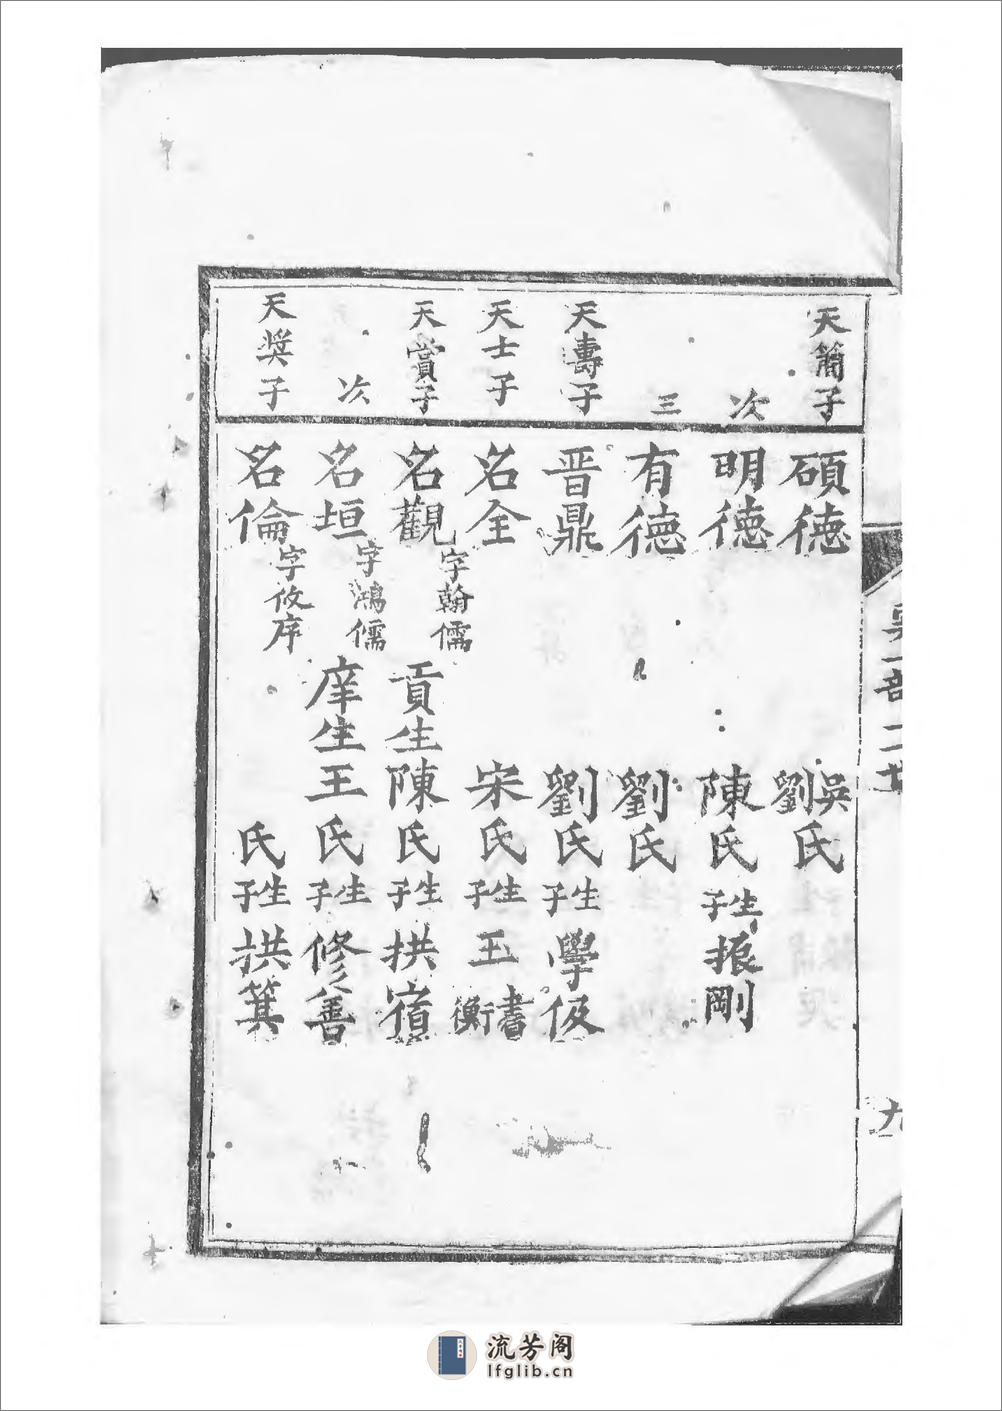 天簡子 碩德 吳劉氏
次 明德 陳氏 生子 振剛
三 有德 劉氏
天壽子 晋鼎 劉氏 生子 學伋
天士子 名全 宋氏 生子 玉書 衡
天賞子 名觀 字翰儒 貢生 陳氏 生子 拱宿
次 名垣 字鴻儒 庠生 王氏 生子 修善
天奨子 名倫 字攸序 氏 生子 拱箕
九
流芳阁
lfglib.cn